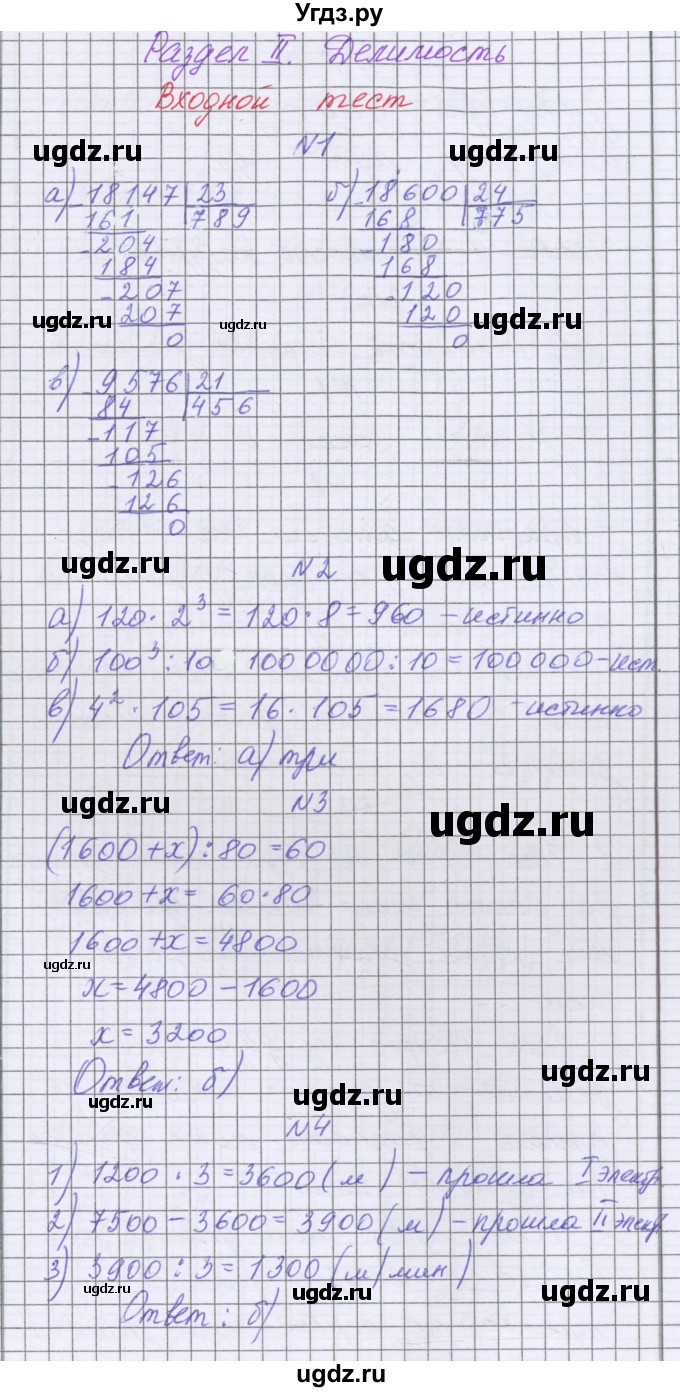 Угдз.ру
Раздел II. Делимость
Входной тест
ugdz.ru ugdz.ru
N1
а) 18147 | 23 б) 18600 | 24
- 161 789 168 775
- 204 - 180
184 168
- 207 - 120
ugdz.ru 207 ugdz.ru 120 ugdz.ru
0 0
в) 9576 | 21
- 84 456
- 117
105
- 126
126
0
ugdz.ru ugdz.ru
N2
а) 120 · 2³ = 120 · 8 = 960 - истинно
б) 100³ : 10 1000000 : 10 = 100000 - ист.
в) 4² · 105 = 16 · 105 = 1680 - истинно
Ответ: а) три
ugdz.ru ugdz.ru
N3
(1600 + x) : 80 = 60
1600 + x = 60 · 80
1600 + x = 4800
ugdz.ru
x = 4800 - 1600
x = 3200
Ответ: б)
ugdz.ru ugdz.ru
N4
1) 1200 · 3 = 3600 (м) - прошла I электр
2) 7500 - 3600 = 3900 (м) - прошла II электр
3) 3900 : 3 = 1300 (м/мин)
ugdz.ru ugdz.ru ugdz.ru
Ответ: б)
ugdz.ru